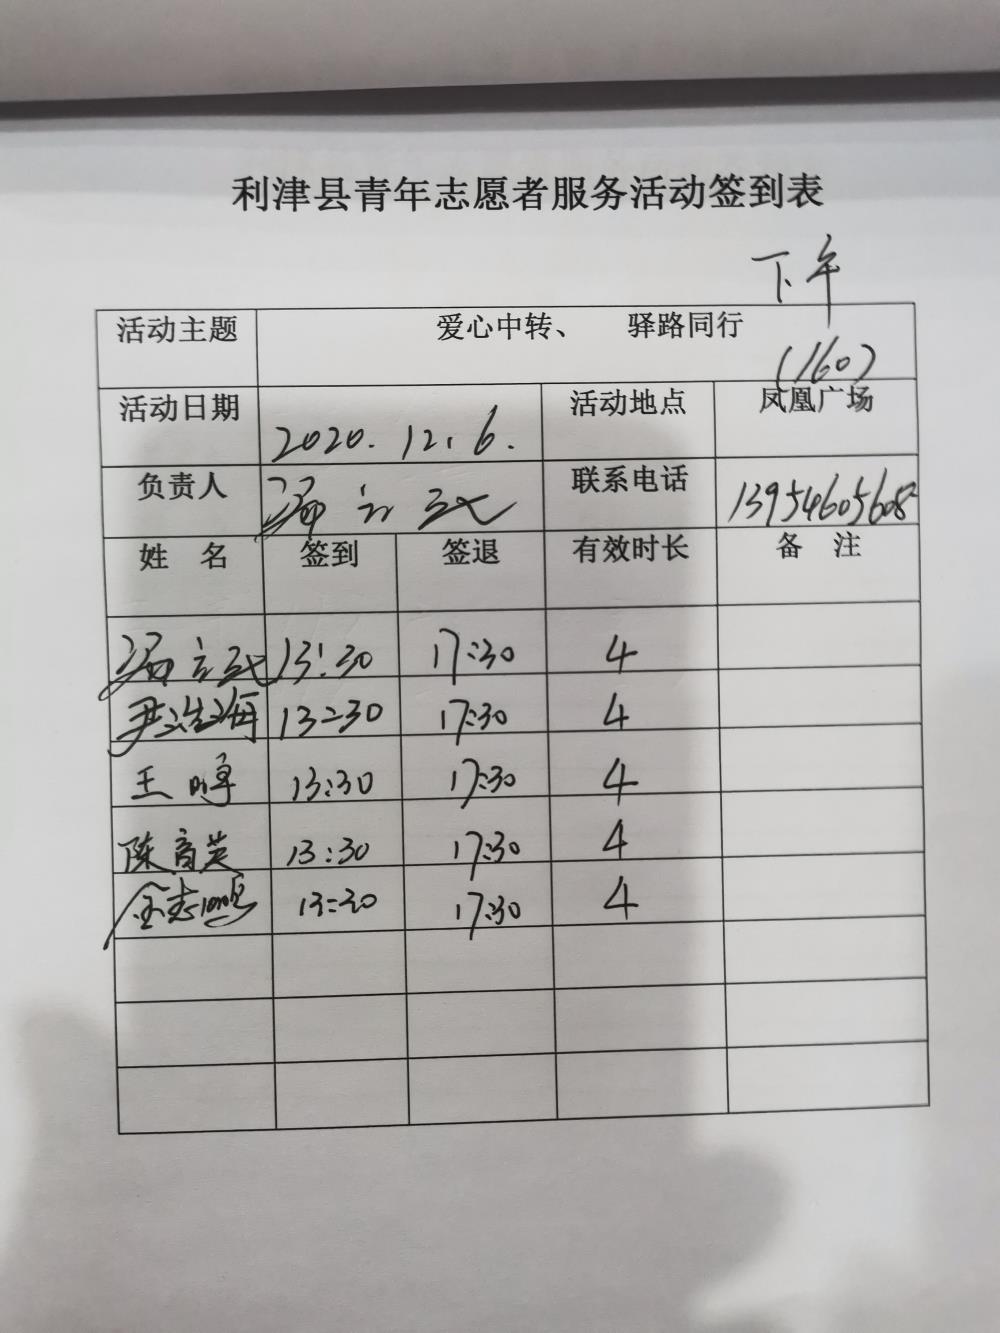 利津县青年志愿者服务活动签到表
下午
活动主题 爱心中转、 驿路同行
(160)
活动日期 2020.12.6. 活动地点 凤凰广场
负责人 联系电话 13954605608
姓 名 签到 签退 有效时长 备 注
13:30 17:30 4
13:30 17:30 4
王 13:30 17:30 4
陈育英 13:30 17:30 4
13:30 17:30 4